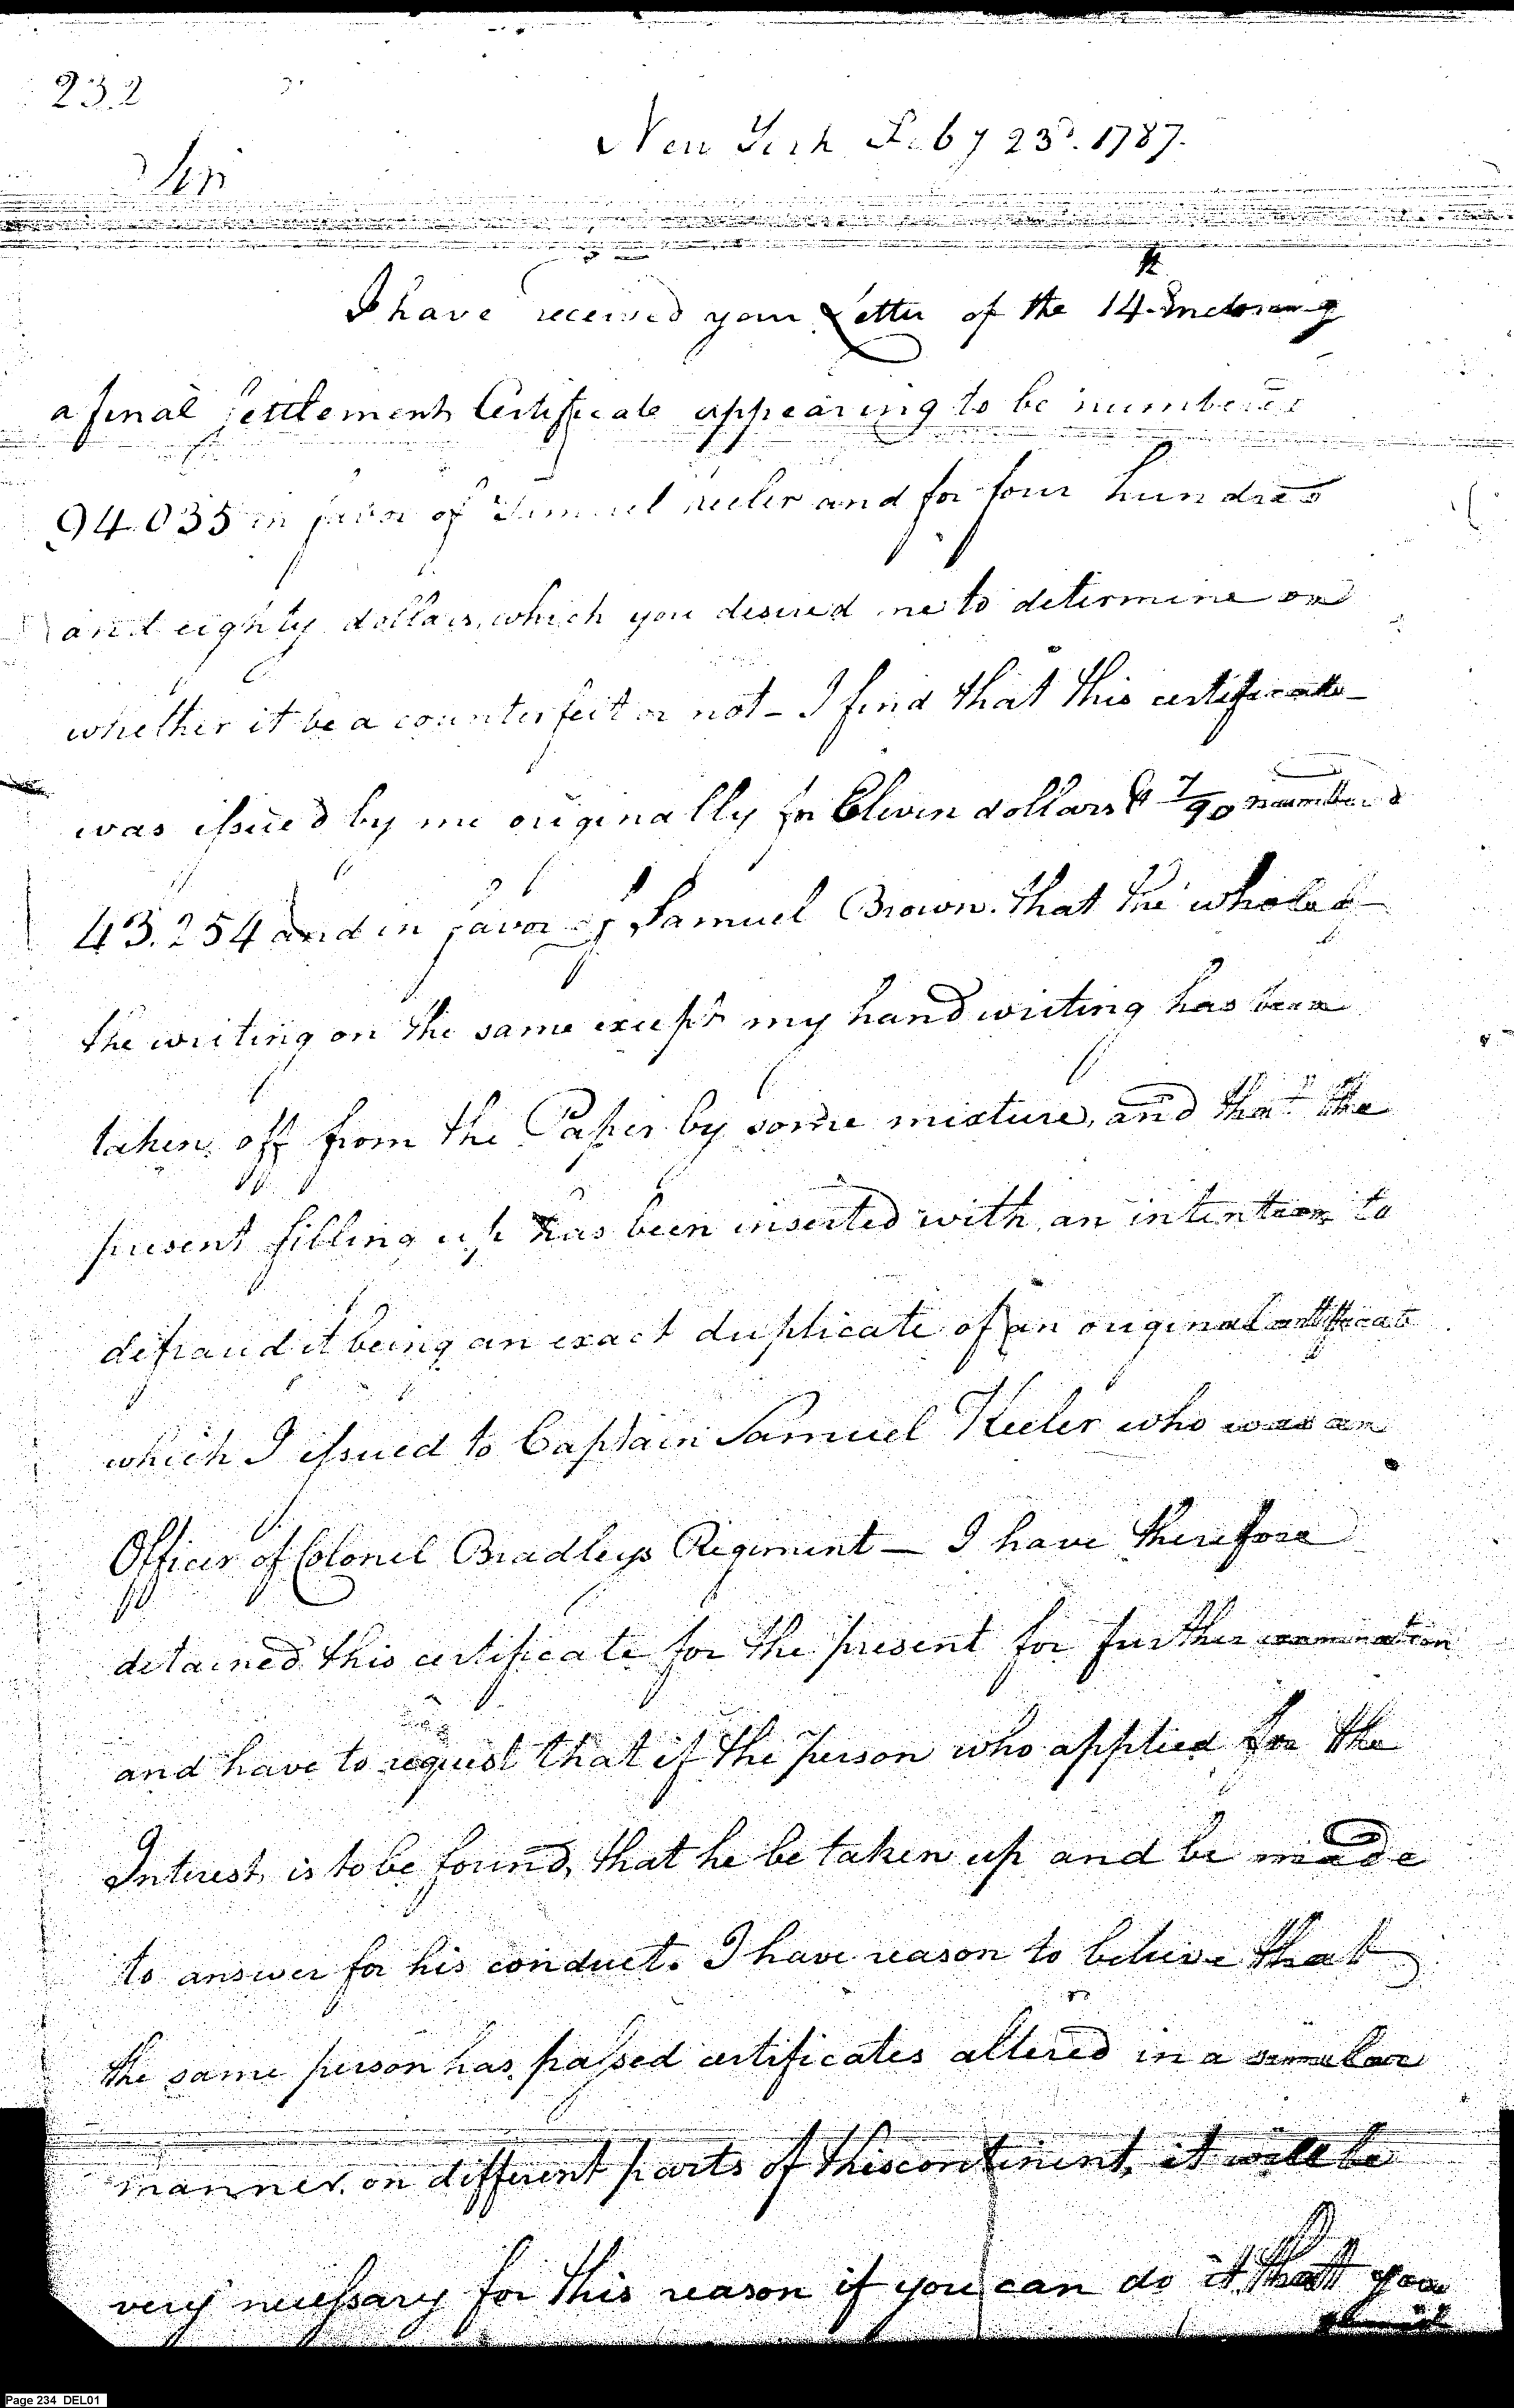 232
New York Feby 23d. 1787.
Sir
I have received your Letter of the 14th Inclosing
a final settlement Certificate appearing to be numbered
94.035 in favor of Samuel Keeler and for four hundred
and eighty dollars, which you desired me to determine on
whether it be a counterfeit or not - I find that this certificate
was issued by me originally for Eleven dollars & 7/90 numbered
43.254 and in favor of Samuel Brown. that the whole of
the writing on the same except my hand writing has been
taken off from the Paper by some mixture, and that the
present filling up has been inserted with an intention to
defraud it being an exact duplicate of an original certificate
which I issued to Captain Samuel Keeler who was an
Officer of Colonel Bradleys Regiment — I have therefore
detained this certificate for the present for further examination
and have to request that if the person who applied for the
Interest is to be found, that he be taken up and be made
to answer for his conduct. I have reason to believe that
the same person has passed certificates altered in a similar
manner on different parts of this continent, it will be
very necessary for this reason if you can do it, that you
should
Page 234 DEL01